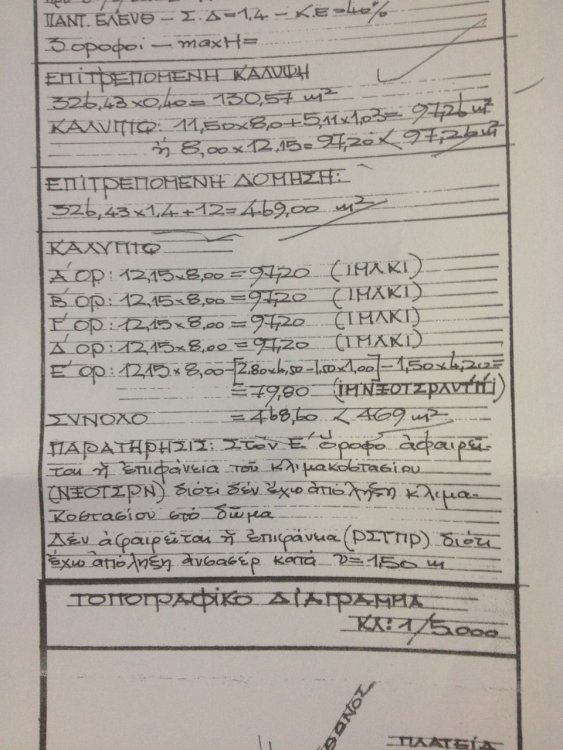 ΠΑΝΤ. ΕΛΕΥΘ – Σ.Δ=1,4 – Κ.Ε=40%
3 οροφοι – maxH=
ΕΠΙΤΡΕΠΟΜΕΝΗ ΚΑΛΥΨΗ
326,43x0,40=130,57 m²
ΚΑΛΥΠΤΩ: 11,50x8,0+5,11x1,03= 97,26 m²
ή 8,00x12,15=97,20 < 97,26 m²
ΕΠΙΤΡΕΠΟΜΕΝΗ ΔΟΜΗΣΗ:
326,43x1,4+12=469,00 m²
ΚΑΛΥΠΤΩ
Α' ΟΡ: 12,15x8,00=97,20 (ΙΜΛΚΙ)
Β' ΟΡ: 12,15x8,00=97,20 (ΙΜΛΚΙ)
Γ' ΟΡ: 12,15x8,00=97,20 (ΙΜΛΚΙ)
Δ' ΟΡ: 12,15x8,00=97,20 (ΙΜΛΚΙ)
Ε' ΟΡ: 12,15x8,00-[2.80x4,50-1,50x1,00]-1,50x4,20=
=79,80
ΣΥΝΟΛΟ =468,60 < 469 m²
ΠΑΡΑΤΗΡΗΣΙΣ: Στον Ε' όροφο άφαιρεί-
ται ή επιφάνεια του κλιμακοστασίου
(ΝΞΟΤΣΡΝ) διότι δέν έχω απόληξη κλιμα-
κοστασίου στό δώμα
Δέν άφαιρείται ή επιφάνεια (ΡΣΤΠΡ) διότι
έχω απόληξη άνσασέρ κατά υ=1,50 m
ΤΟΠΟΓΡΑΦΙΚΟ ΔΙΑΓΡΑΜΜΑ
ΚΛ: 1/5.000
ΠΛΑΤΕΙΑ